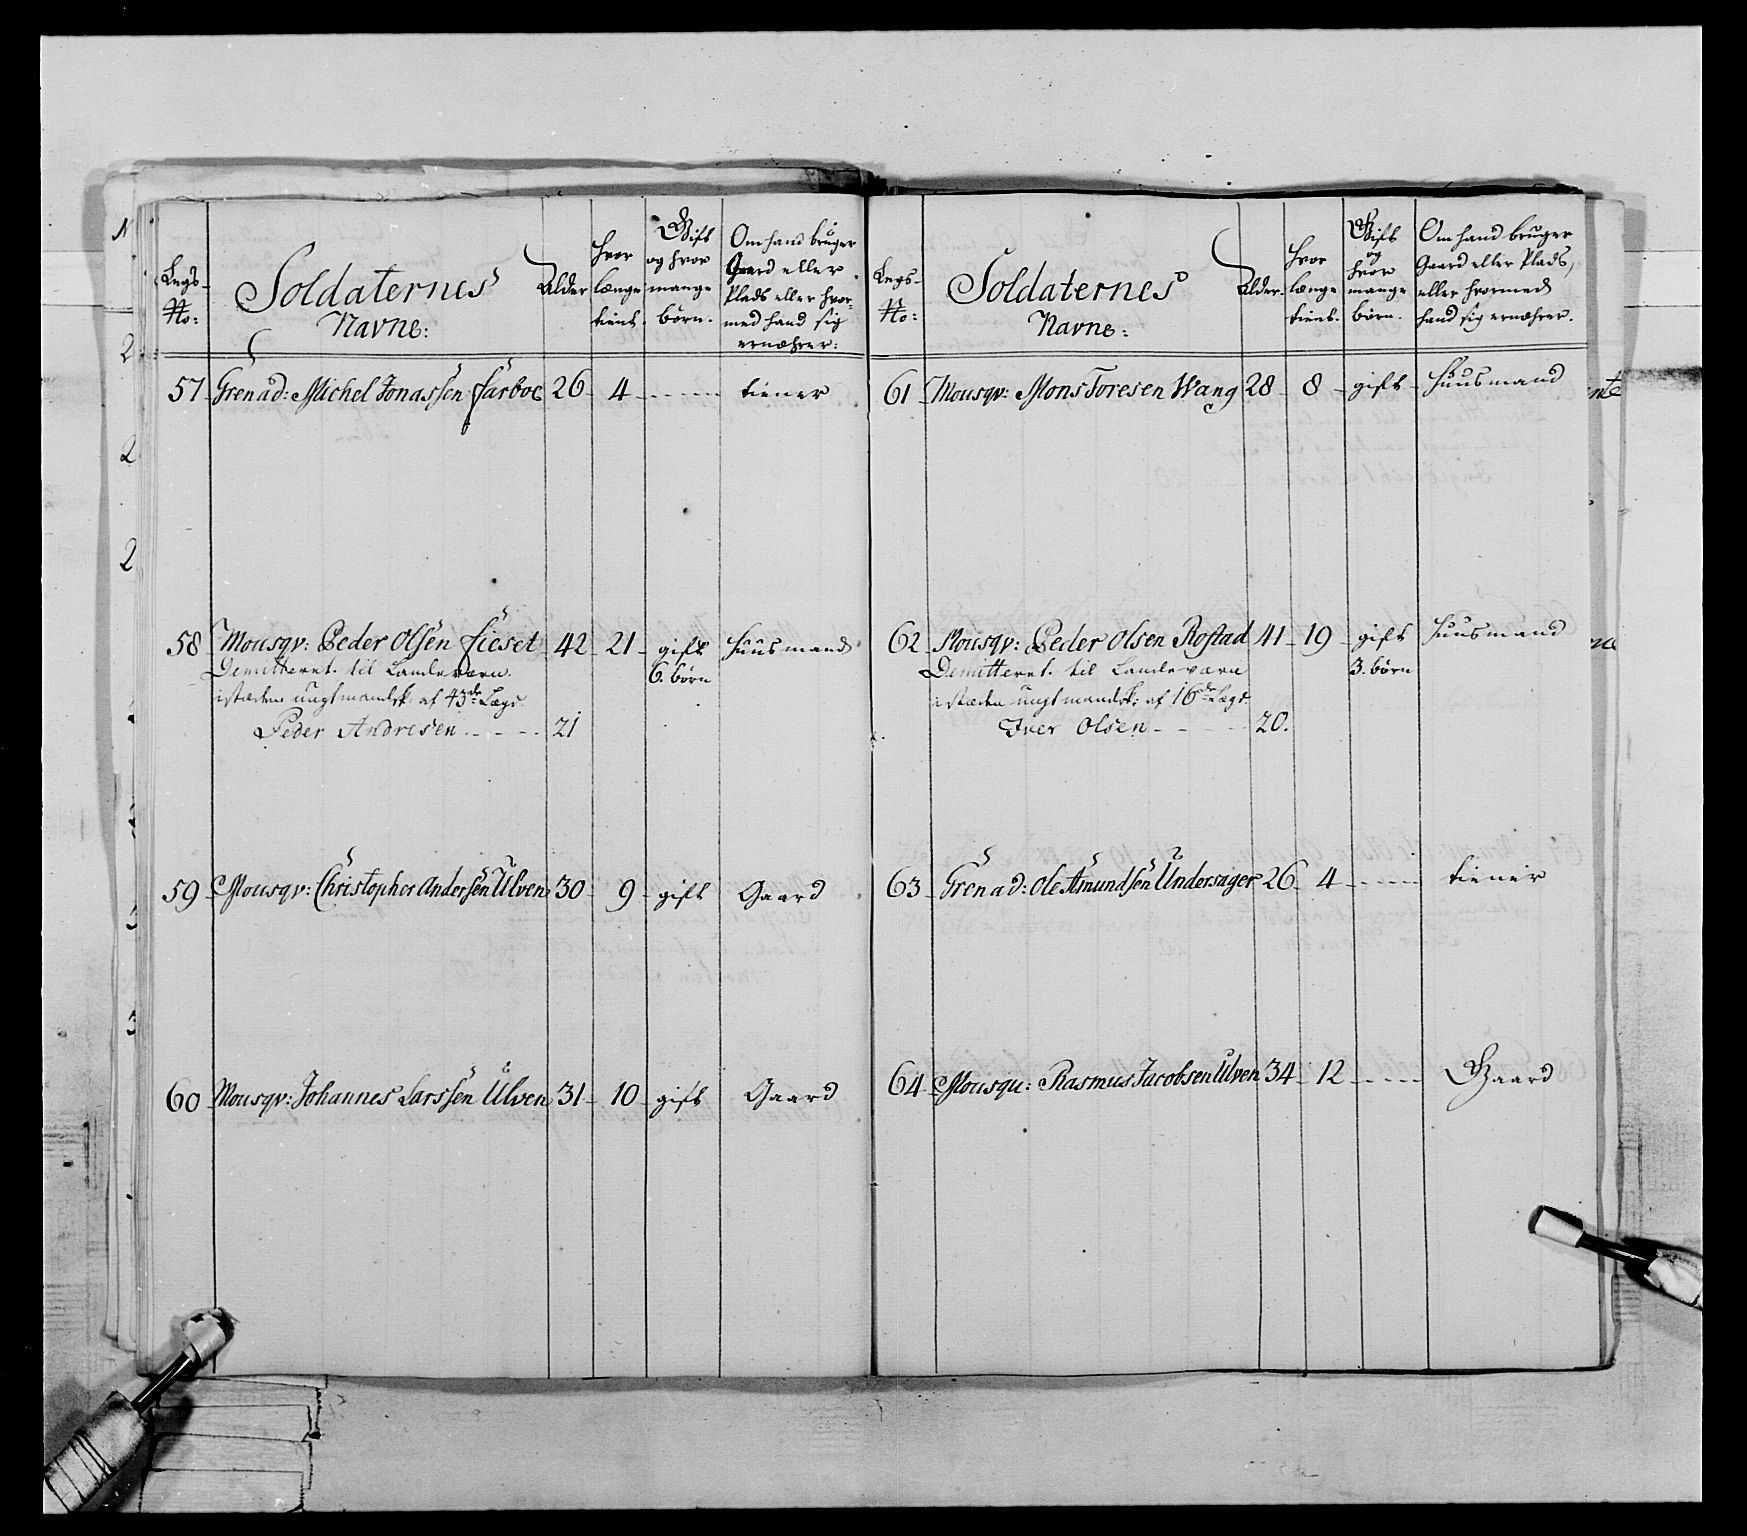 Legs-
No:
Soldaternes
Navne:
Alder
hvor
længe
tient.
Gift
og hvor
mange
børn.
Om hand bruger
Gaard eller
Plads eller hvor-
med hand sig
ernærer:
57 Grenad: Michel Jonassen 26 4 tiener
58 Mousqv: Peder Olsen 42 21 gift Huusmand
Demitteret til Landeværn 6. børn
istæden ungt mandsk: af 43de Lægd
Peder Andresen 21
59 Mousqv: Christopher Andersen Ulven 30 9 gift Gaard
60 Mousqv: Johannes Larssen Ulven 31 10 gift Gaard
Legs-
No:
Soldaternes
Navne:
Alder.
hvor
længe
tient.
Gift
og
hvor
mange
børn.
Om hand bruger
Gaard eller Plads,
eller hvormed
hand sig ernærer.
61 Mousqv: Mons Toresen Wang 28 8 gift Huusmand
62 Mousqv: Peder Olsen Rostad 41 19 gift Huusmand
Demitteret til Landeværn 3. børn
istæden ungt mandsk: af 16de Lægd
Iver Olsen 20.
63 Grenad: Ole Amundsen Undersager 26 4 tiener
64 Mousqu: Rasmus Jacobsen Ulven 34 12 Gaard